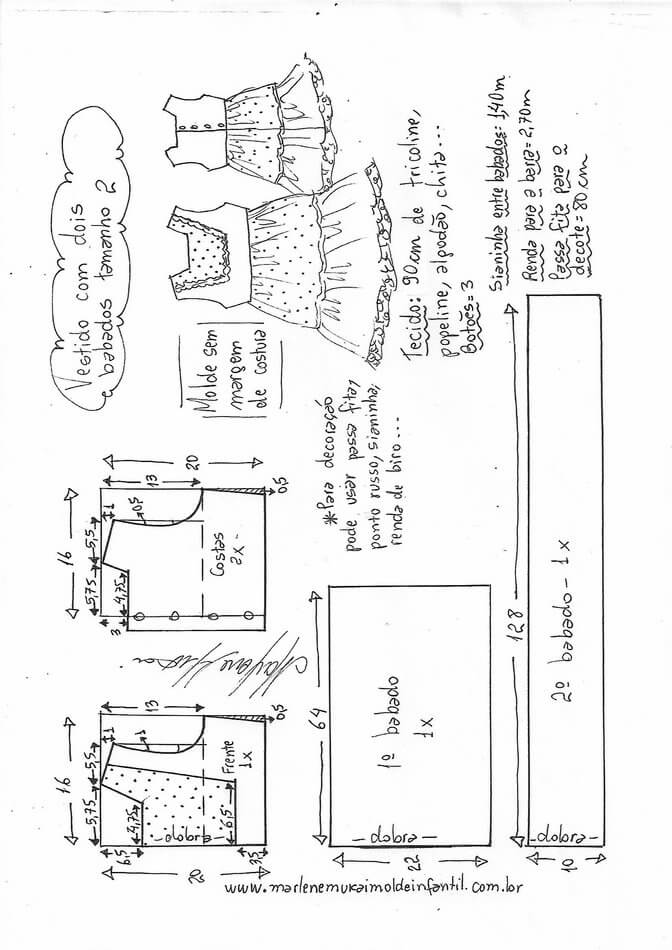 Vestido com dois
babados tamanho 2
Molde sem
margem
de costura
Tecido: 90cm de tricoline,
popeline, algodão, chita...
Botões=3
Sianinha entre babados: 1,40m
Renda para a barra=2,70m
Passa fita para o
decote=80cm
*Para decoração
pode usar passa fita,
ponto russo, sianinha,
renda de biro...
16
5,75
5,5
1
13
20
0,5
4,75
3
Costas
2x
0,5
16
5,75
5,5
1
13
1
4,75
6,5
6,5
Frente
1x
dobra
3,5
20
0,5
64
1º babado
1x
dobra
22
128
2º babado - 1x
dobra
10
www.marlenemukaimoldeinfantil.com.br